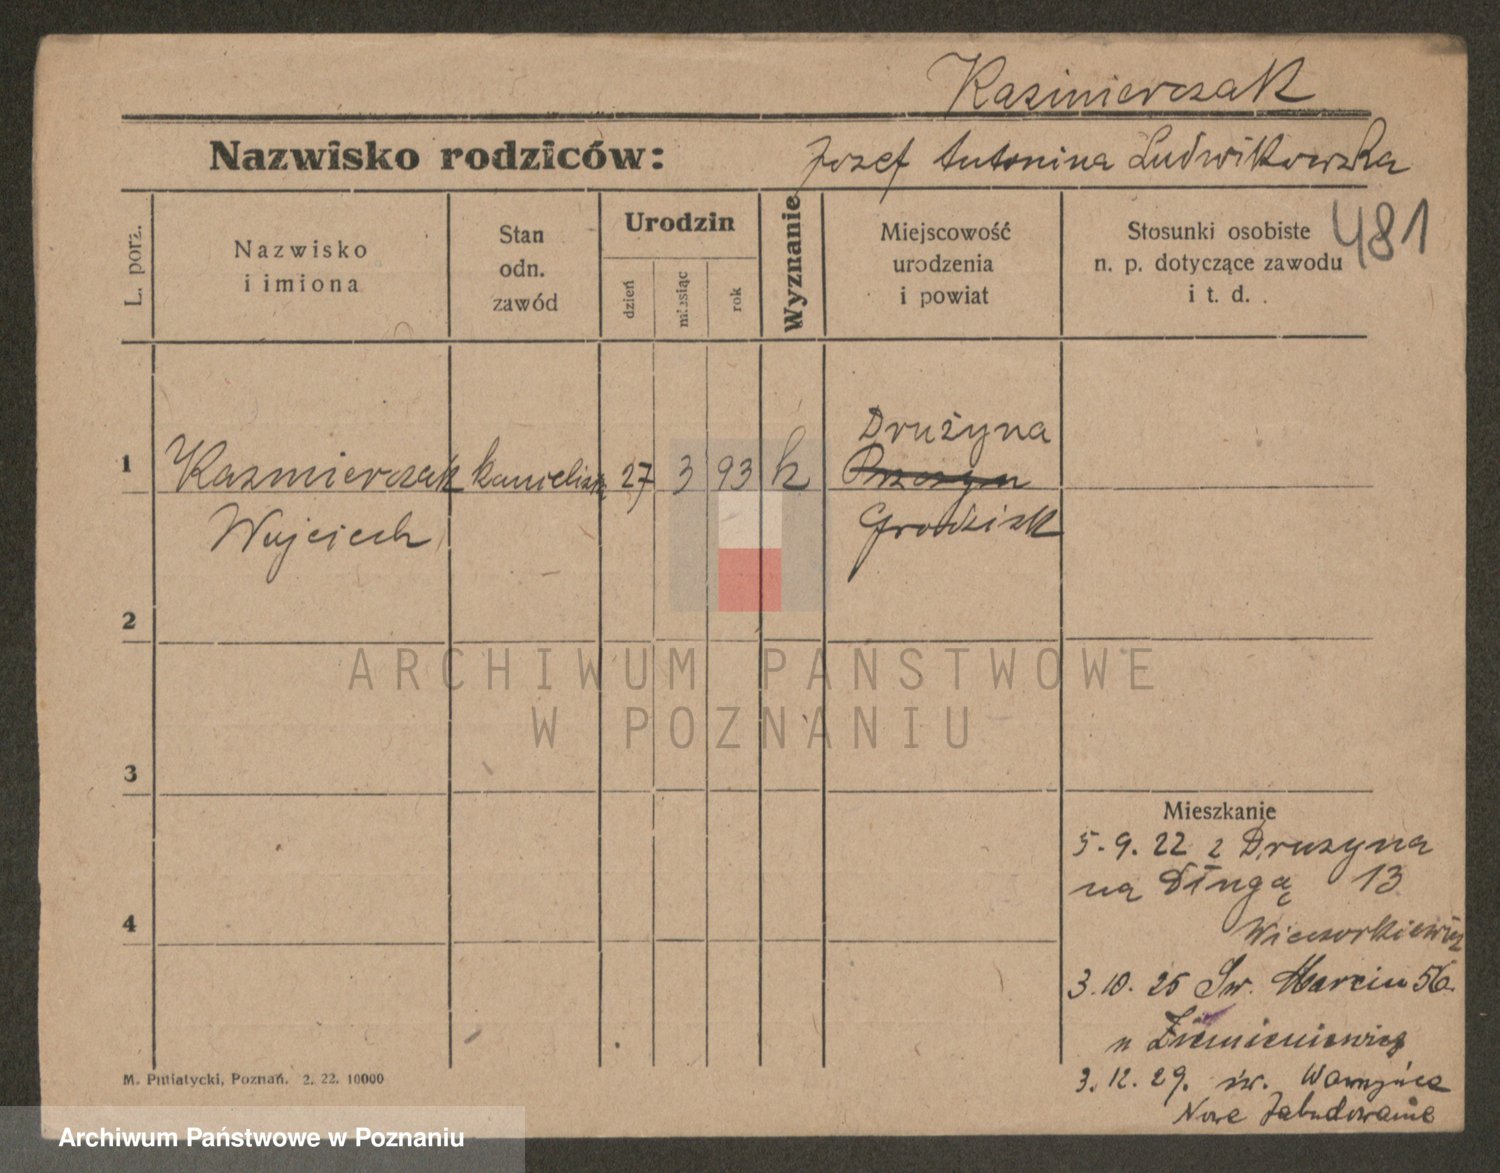 Kazimierczak
Nazwisko rodziców: Jozef Antonina Ludwikowska
481
L. porz.
Nazwisko
i imiona
Stan
odn.
zawód
Urodzin
dzień
miesiąc
rok
Wyznanie
Miejscowość
urodzenia
i powiat
Stosunki osobiste
n. p. dotyczące zawodu
i t. d.
Drużyna
1 Kazmierczak 27 3 93 k
Wojciech Grodzisk
2
ARCHIWUM PAŃSTWOWE
W POZNANIU
3
Mieszkanie
5.9.22 z Druzyna
na Długą 13
4
Wieczorkiewicz
3.10.25 Św. Marcin 56.
u
3.12.29. św. Wawrzyńca
Nowe Zabudowanie
M. Putiatycki, Poznań. 2. 22. 10000
Archiwum Państwowe w Poznaniu